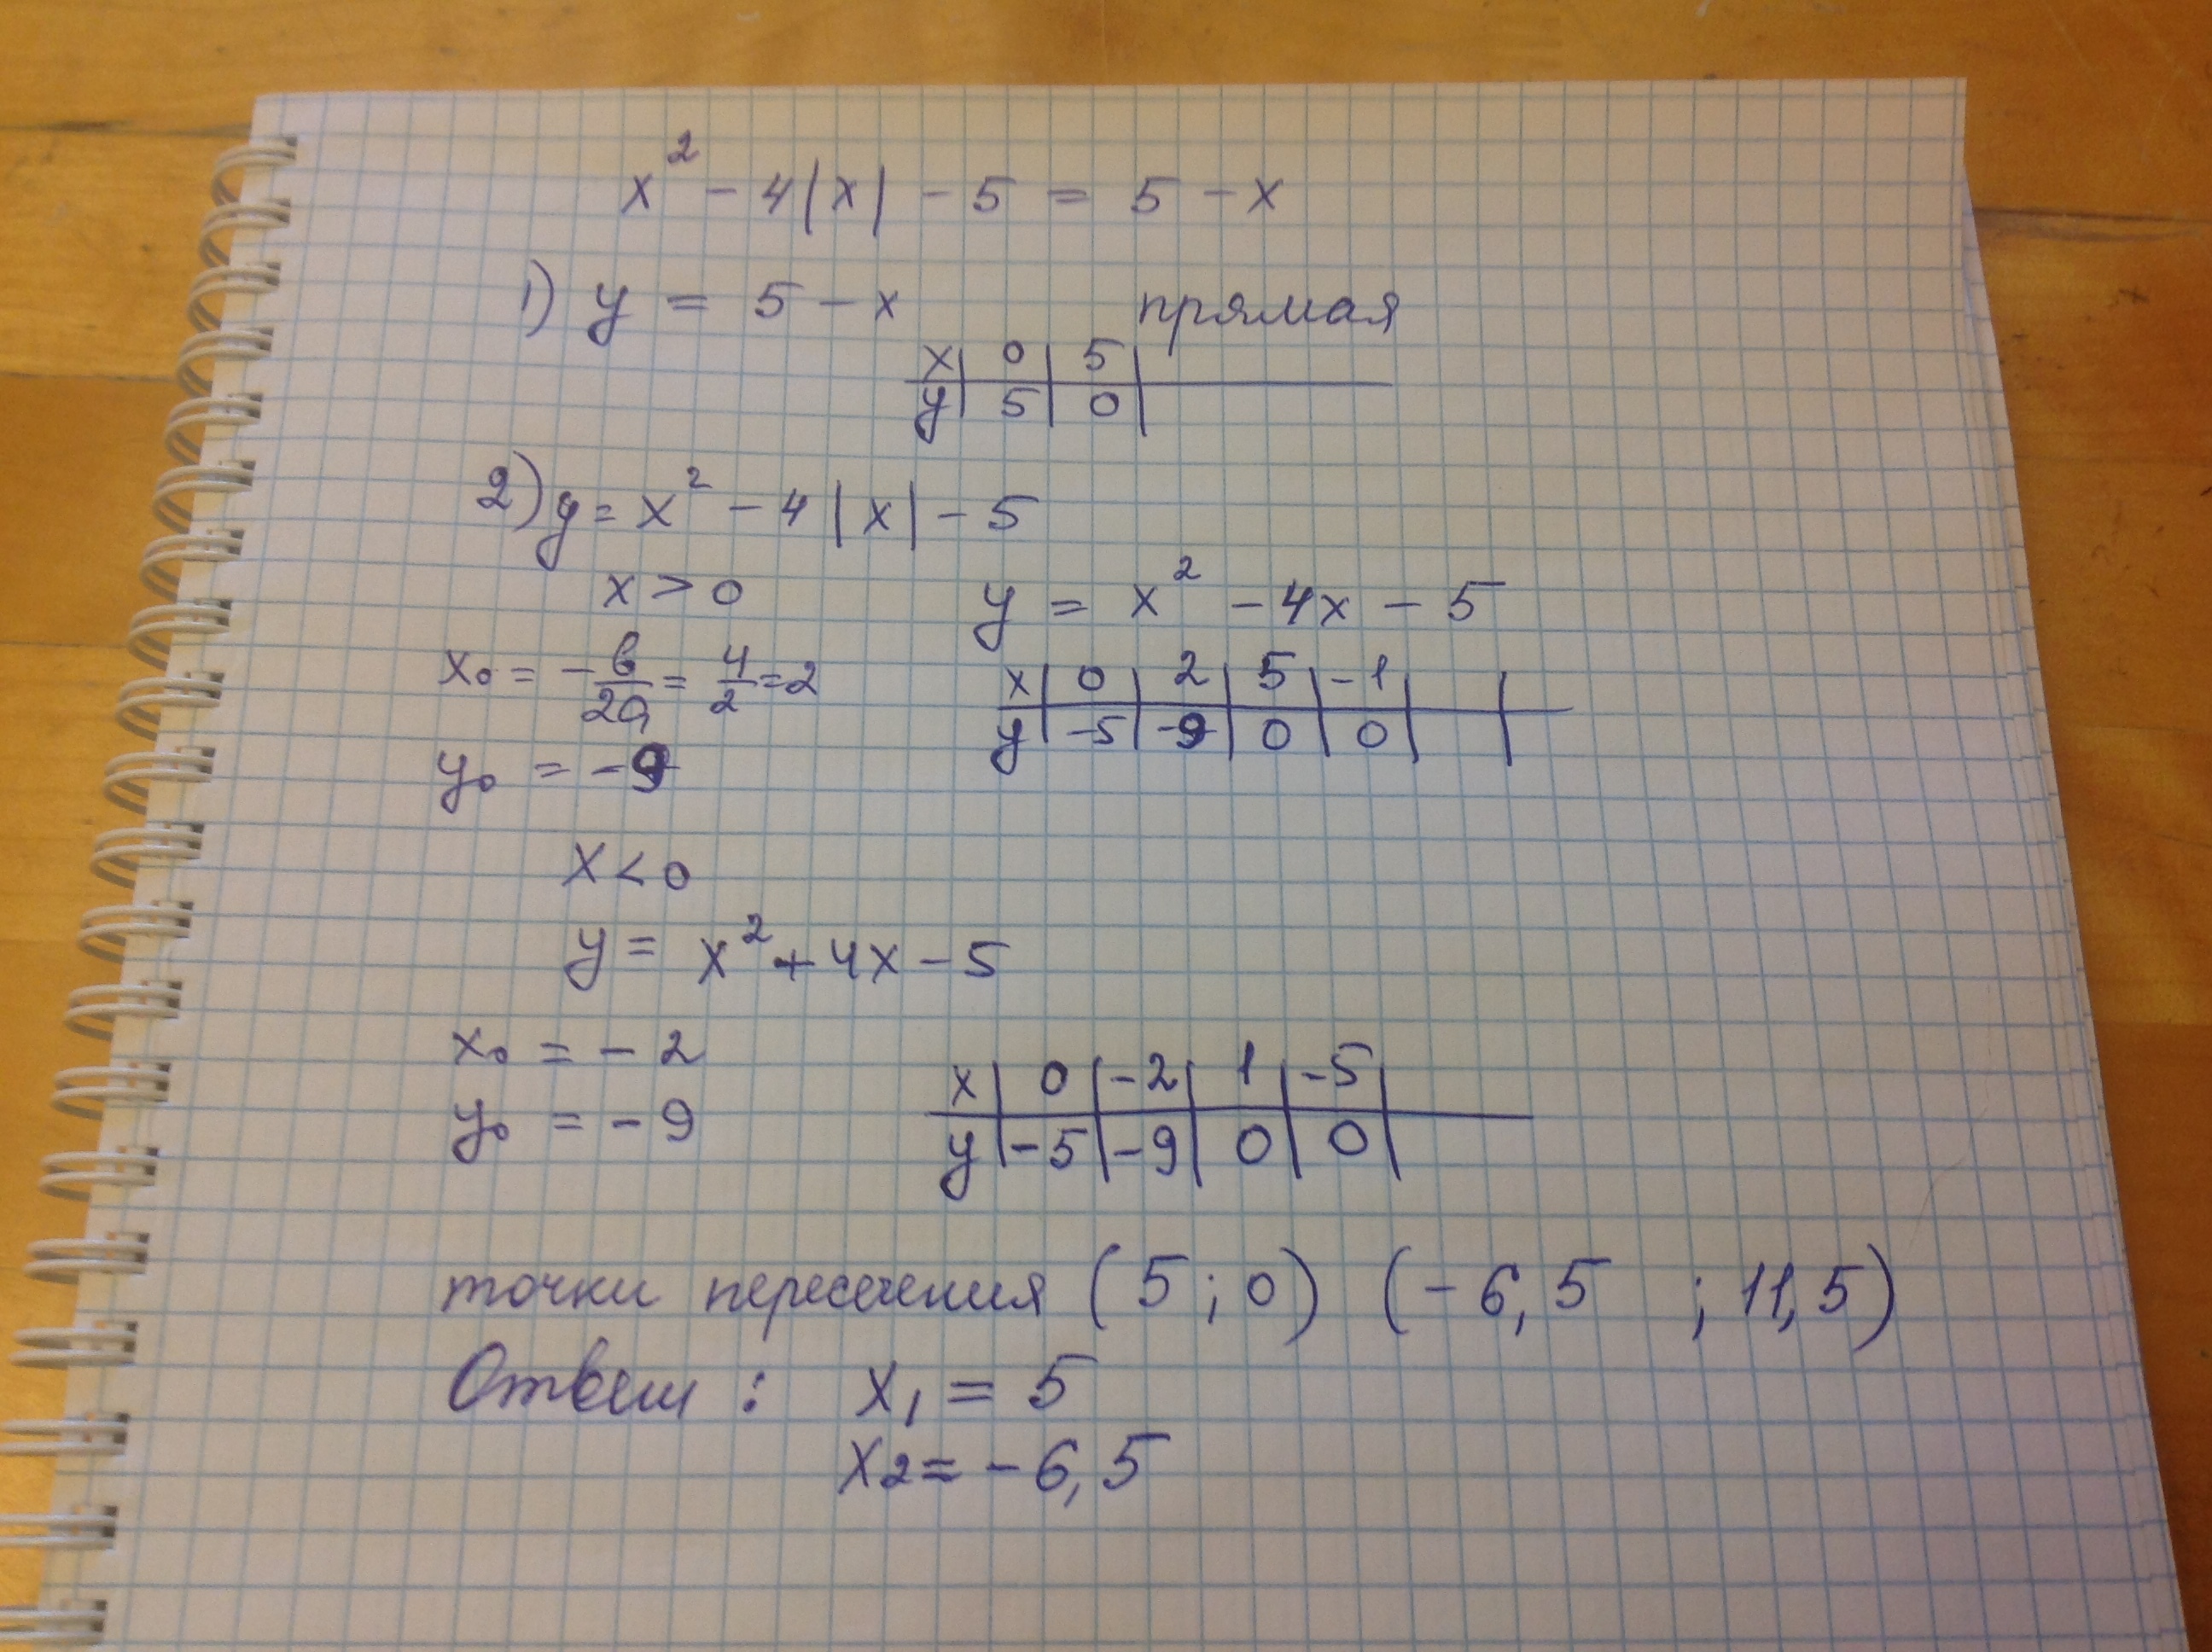 x² - 4|x| - 5 = 5 - x
1) y = 5 - x прямая
x | 0 | 5 |
y | 5 | 0 |
2) y = x² - 4|x| - 5
x > 0 y = x² - 4x - 5
x₀ = -в/2a = 4/2 = 2
x | 0 | 2 | 5 | -1 |
y | -5 | -9 | 0 | 0 |
y₀ = -9
x < 0
y = x² + 4x - 5
x₀ = -2
y₀ = -9
x | 0 | -2 | 1 | -5 |
y | -5 | -9 | 0 | 0 |
точки пересечения (5; 0) (-6,5 ; 11,5)
Ответ: x₁ = 5
x₂ = -6,5